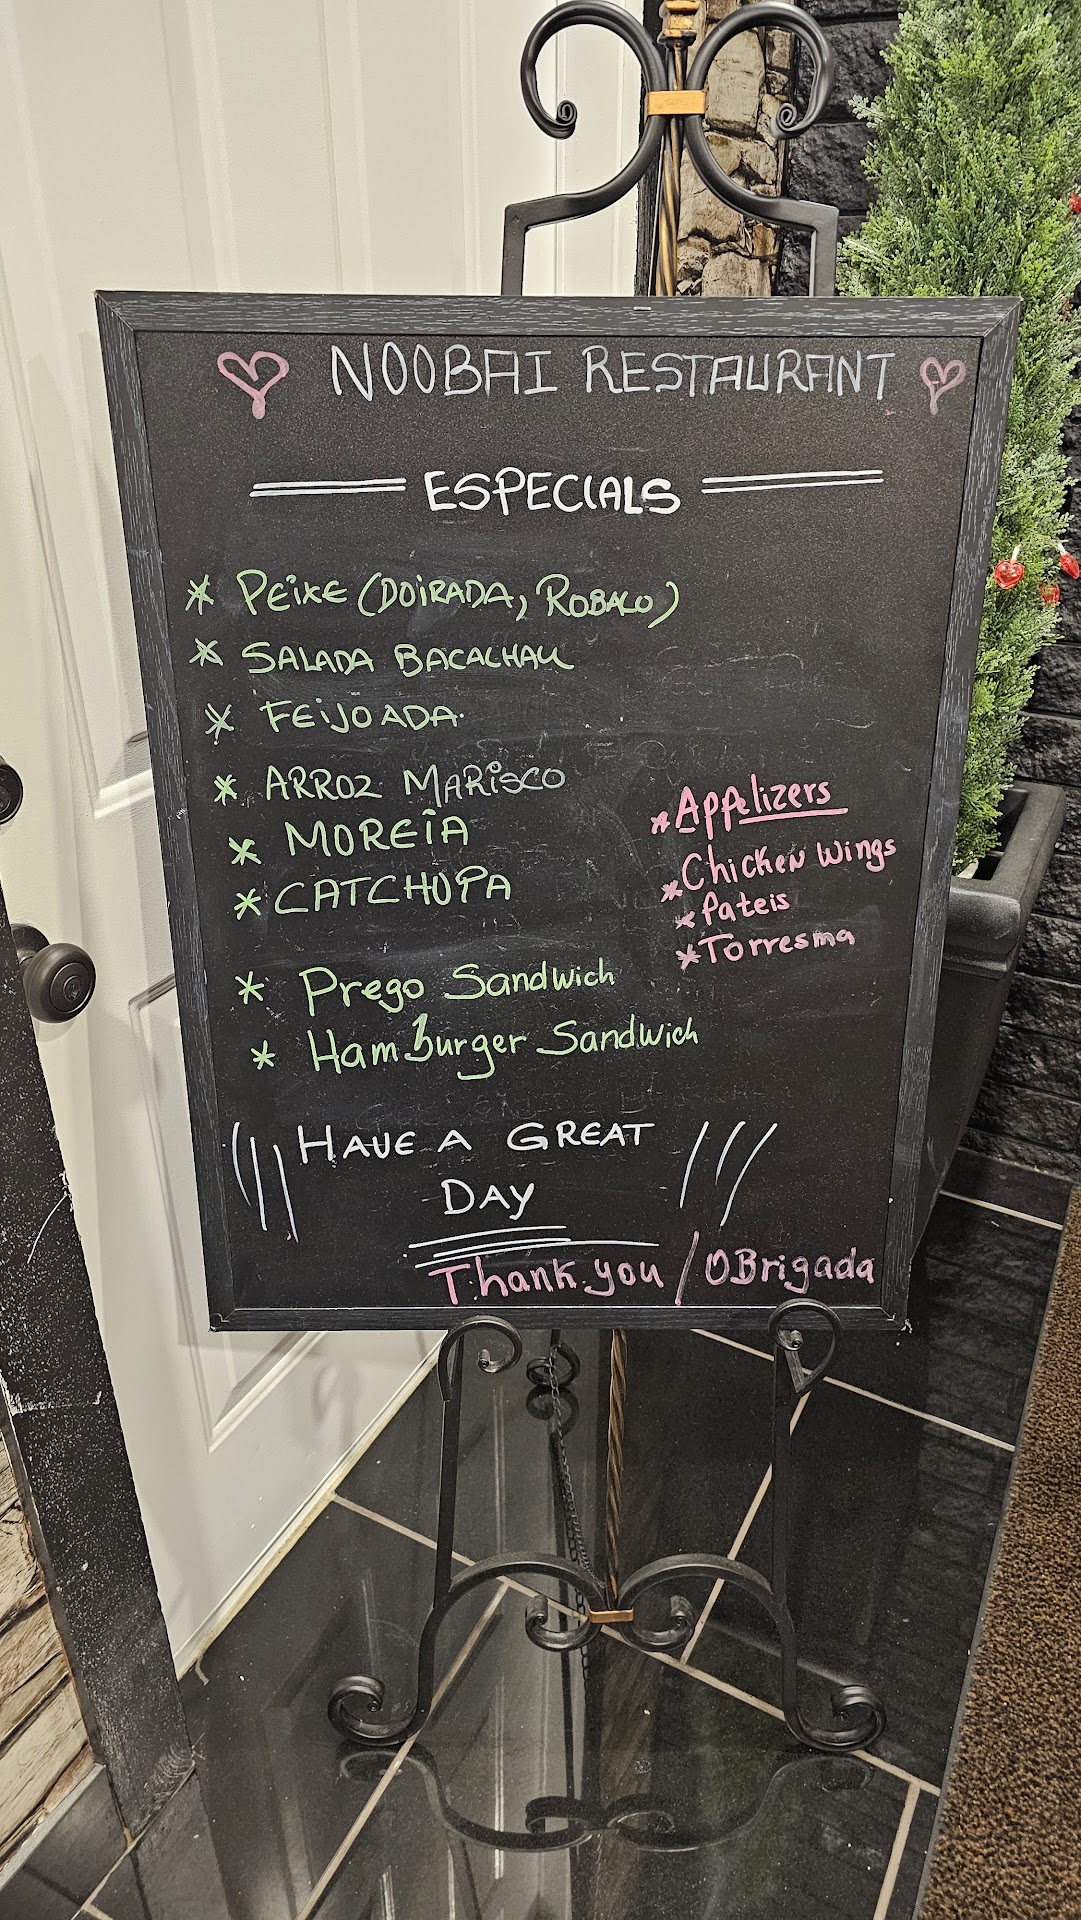 NOOBAI RESTAURANT
ESPECIALS
* PEiXE (DOiRADA, ROBALO)
* SALADA BACALHAU
* FEiJOADA.
* ARROZ MARiSCO
* MOREiA
* CATCHUPA
* Appetizers
* Chicken Wings
* Pateis
* Torresma
* Prego Sandwich
* HamBurger Sandwich
HAVE A GREAT
DAY
Thank you / OBrigada